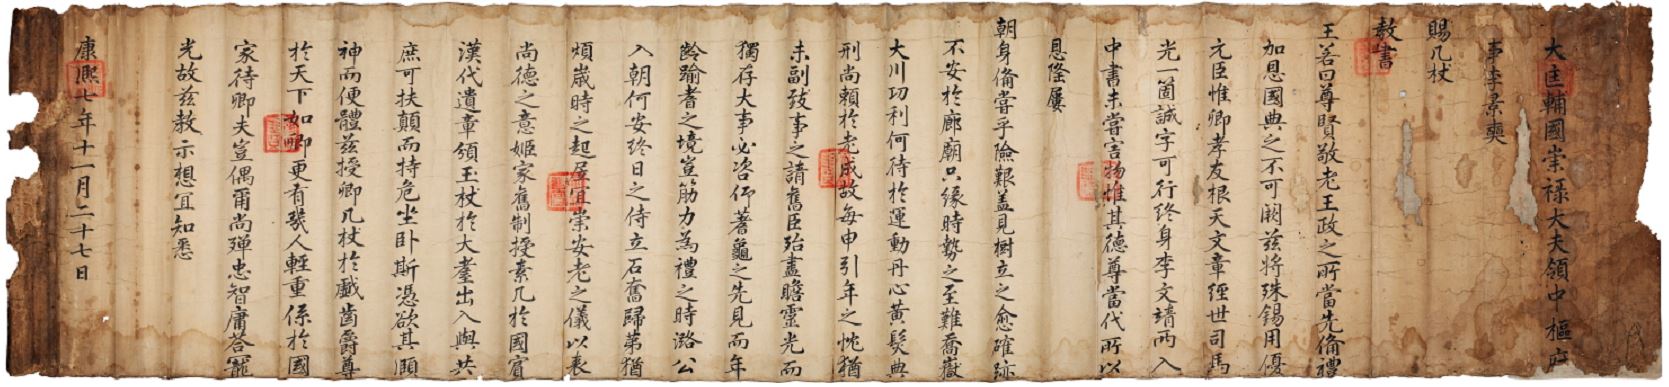 大匡輔國崇祿大夫領中樞府
事李景奭
賜几杖
教書
王若曰尊賢敬老王政之所當先備禮
加恩國典之不可闕茲將殊錫用優
元臣惟卿孝友根天文章經世司馬
光一箇誠字可行終身李文靖兩入
中書未嘗害物惟其德尊當代所以
恩隆屢
朝身備嘗乎險艱蓋見樹立之愈確跡
不安於廊廟只緣時勢之至難喬嶽
大川功利何待於運動丹心黃髮典
刑尚賴於老成故每申引年之忱猶
未副致事之請舊臣殆盡瞻靈光而
獨存大事必咨仰蓍龜之先見而年
齡踰耆之境豈筋力為禮之時潞公
入朝何妄終日之侍立石奮歸第猶
煩歲時之起居宜崇安老之儀以表
尚德之意姬家舊制授素几於國賓
漢代遺章頒玉杖於大耋出入與共
庶可扶顛而持危坐臥斯憑欲其頤
神而便體茲授卿几杖於戲齒爵尊
於天下如卿更有幾人輕重係於國
家待卿夫豈偶爾尚殫忠智庸荅寵
光故茲教示想宜知悉
康熙七年十一月二十七日